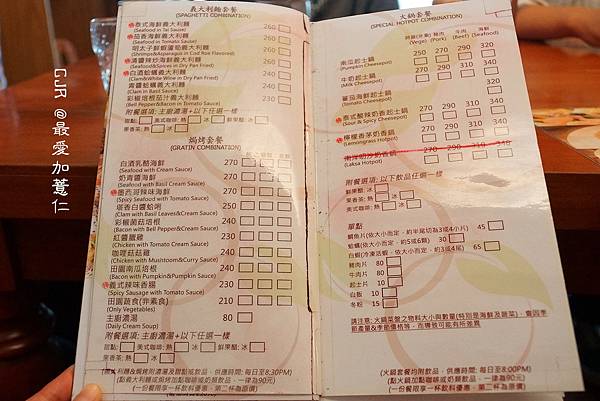 義大利麵套餐
(SPAGHETTI COMBINATION)
泰式海鮮義大利麵 260
(Seafood in Tai Sauce)
茄香海鮮義大利麵 260
(Seafood in Tomato Sauce)
明太子鮮蝦蘆筍義大利麵
(Shrimps&Asparagus in Cod Roe Flavored)
清醬辣炒海鮮義大利麵 260
(Seafood&Spices in Dry Pan Fried)
白酒蛤蠣義大利麵 230
(Clam&White Wine in Dry Pan Fried)
青醬蛤蠣義大利麵 230
(Clam in Basil Sauce)
彩椒培根茄汁義大利麵 230
(Bell Pepper&Bacon in Tomato Sauce)
附餐選項:主廚濃湯+以下任選一樣
甜點: 美式咖啡:熱 冰 鮮果醋:冰
果香茶:熱 冰
焗烤套餐
(GRATIN COMBINATION)
白酒乳酪海鮮 270
(Seafood with Cream Sauce)
奶青醬海鮮 270
(Seafood with Basil&Cream Sauce)
墨西哥辣味海鮮 270
(Spicy Seafood with Tomato Sauce)
塔香白醬蛤蜊 250
(Clam with Basil Leaves&Cream Sauce)
彩椒菌菇培根 240
(Bacon with Bell Pepper&Cream Sauce)
紅醬臘雞 230
(Chicken with Tomato Cream Sauce)
咖哩菇菇雞 240
(Chicken with Mushtoom&Curry Sauce)
田園南瓜培根 240
(Bacon with Pumpkin&Pumpkin Sauce)
義式辣味香腸 230
(Spicy Sausage with Tomato Sauce)
田園蔬食(非素食) 210
(Only Vegetables)
主廚濃湯 80
(Daily Cream Soup)
附餐選項:主廚濃湯+以下任選一樣
甜點: 美式咖啡:熱 冰 鮮果醋:冰
果香茶:熱 冰
(義大利麵&焗烤附濃湯及甜點或飲品,供應時間:每日至8:30PM)
(點義大利麵或焗烤加點咖啡或奶類飲品,一律為90元)
(一份餐限享一杯飲料優惠,第二杯為原價)
火鍋套餐
(SPECIAL HOTPOT COMBINATION)
豬肉 牛肉 海鮮
(Vege) (Pork) (Beef) (Seafood)
南瓜起士鍋 250 270 290 320
(Pumpkin Cheesepot)
牛奶起士鍋 270 290 310 340
(Milk Cheesepot)
蕃茄海鮮起士鍋 320
(Tomato Cheesepot)
泰式酸辣奶香起士鍋 270 290 310 340
(Sour & Spicy Cheesepot)
檸檬香茅奶香鍋 270 290 310 340
(Lemongrass Hotpot)
南洋叻沙奶香鍋 270 290 310 340
(Laksa Hotpot)
附餐選項:以下飲品任選一樣
鮮果醋:冰
果香茶:熱 冰
美式咖啡:熱 冰
單點
鯛魚片(依大小而定,約半尾切為3或4小片) 45
蛤蠣(依大小而定,約5或6顆) 30
白蝦(冷凍活蝦,依大小而定,約3或4尾) 65
豬肉片 80
牛肉片 80
起士片 10
白飯 10
冬粉 15
請注意:火鍋菜盤之物料大小與數量(特別是海鮮及蔬菜),會因季
節產量&季節價格等,而導致可能有所差異
(火鍋套餐均附飲品,供應時間:每日至8:30PM)
(點火鍋加點咖啡或奶類飲品,一律為90元)
(一份餐限享一杯飲料優惠,第二杯為原價)
GJR @最愛加薏仁